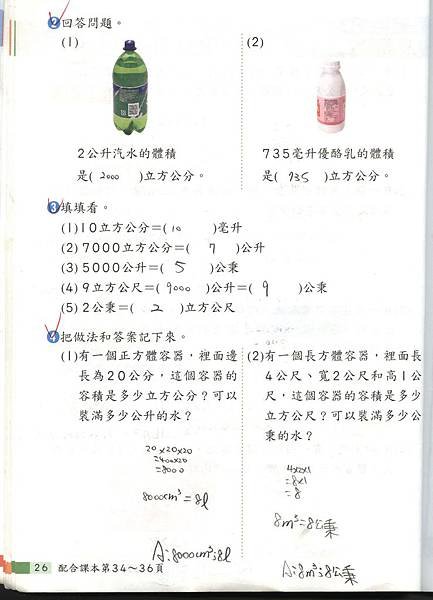 2 回答問題。
(1)
(2)
2公升汽水的體積
是( 2000 )立方公分。
735毫升優酪乳的體積
是( 735 )立方公分。
3 填填看。
(1)10立方公分=( 10 )毫升
(2)7000立方公分=( 7 )公升
(3)5000公升=( 5 )公秉
(4)9立方公尺=( 9000 )公升=( 9 )公秉
(5)2公秉=( 2 )立方公尺
4 把做法和答案記下來。
(1)有一個正方體容器,裡面邊
長為20公分,這個容器的
容積是多少立方公分?可以
裝滿多少公升的水?
20×20×20
=400×20
=8000
8000cm³=8l
A:8000cm³;8l
(2)有一個長方體容器,裡面長
4公尺、寬2公尺和高1公
尺,這個容器的容積是多少
立方公尺?可以裝滿多少公
秉的水?
4×2×1
=8×1
=8
8m³=8公秉
A:8m³;8公秉
26 配合課本第34~36頁